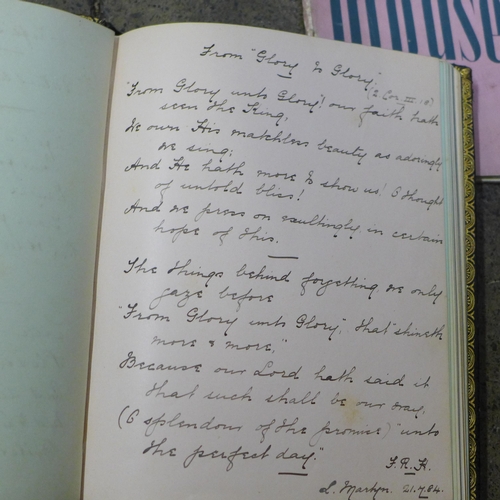 From "Glory to Glory"
(2 Cor III 18)
"From Glory unto Glory"! our faith hath
seen the King,
We own His matchless beauty, as adoringly
we sing:
And He hath more to show us! O thought
of untold bliss!
And we press on exultingly, in certain
hope of this.
The things behind forgetting, we only
gaze before
"From Glory unto Glory", that "shineth
more & more,"
Because our Lord hath said it
that such shall be our way,
(O splendour of the promise) "unto
the perfect day."
F.R.H.
L. Martyn. 21.7.84.